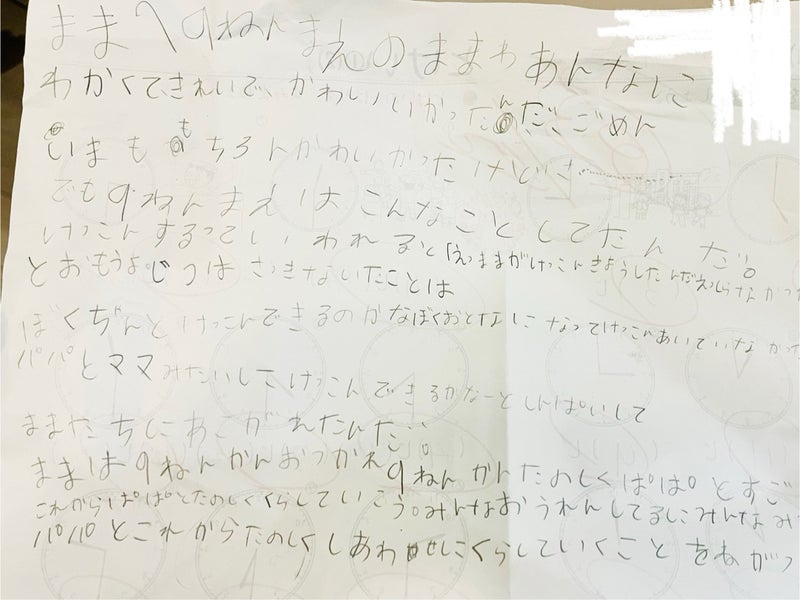 ままへ9ねんまえのままわあんなに
わかくてきれいで、かわいいかったんだ、ごめん
いまももちろんかわいかったけどさ…………
でも9ねんまえはこんなことしてたんだ。
けっこんするっていわれると「えっままがけっこんきょうしたんだえっしらなかった
とおもうよじつはさっきないたことは
ぼくちゃんとけっこんできるのかなぼくおとなになってけっこんあいていなかった
パパとママみたいにけっこんできるかなーとしんぱいして
ままたちにあこがれたんだ。
ままは9ねんかんおつかれ9ねんかんたのしくぱぱとすご
これからぱぱとたのしくくらしていこう。みんなおうれんしてるしにみんなみ
パパとこれからたのしくしあわせにくらしていくことをねがっ